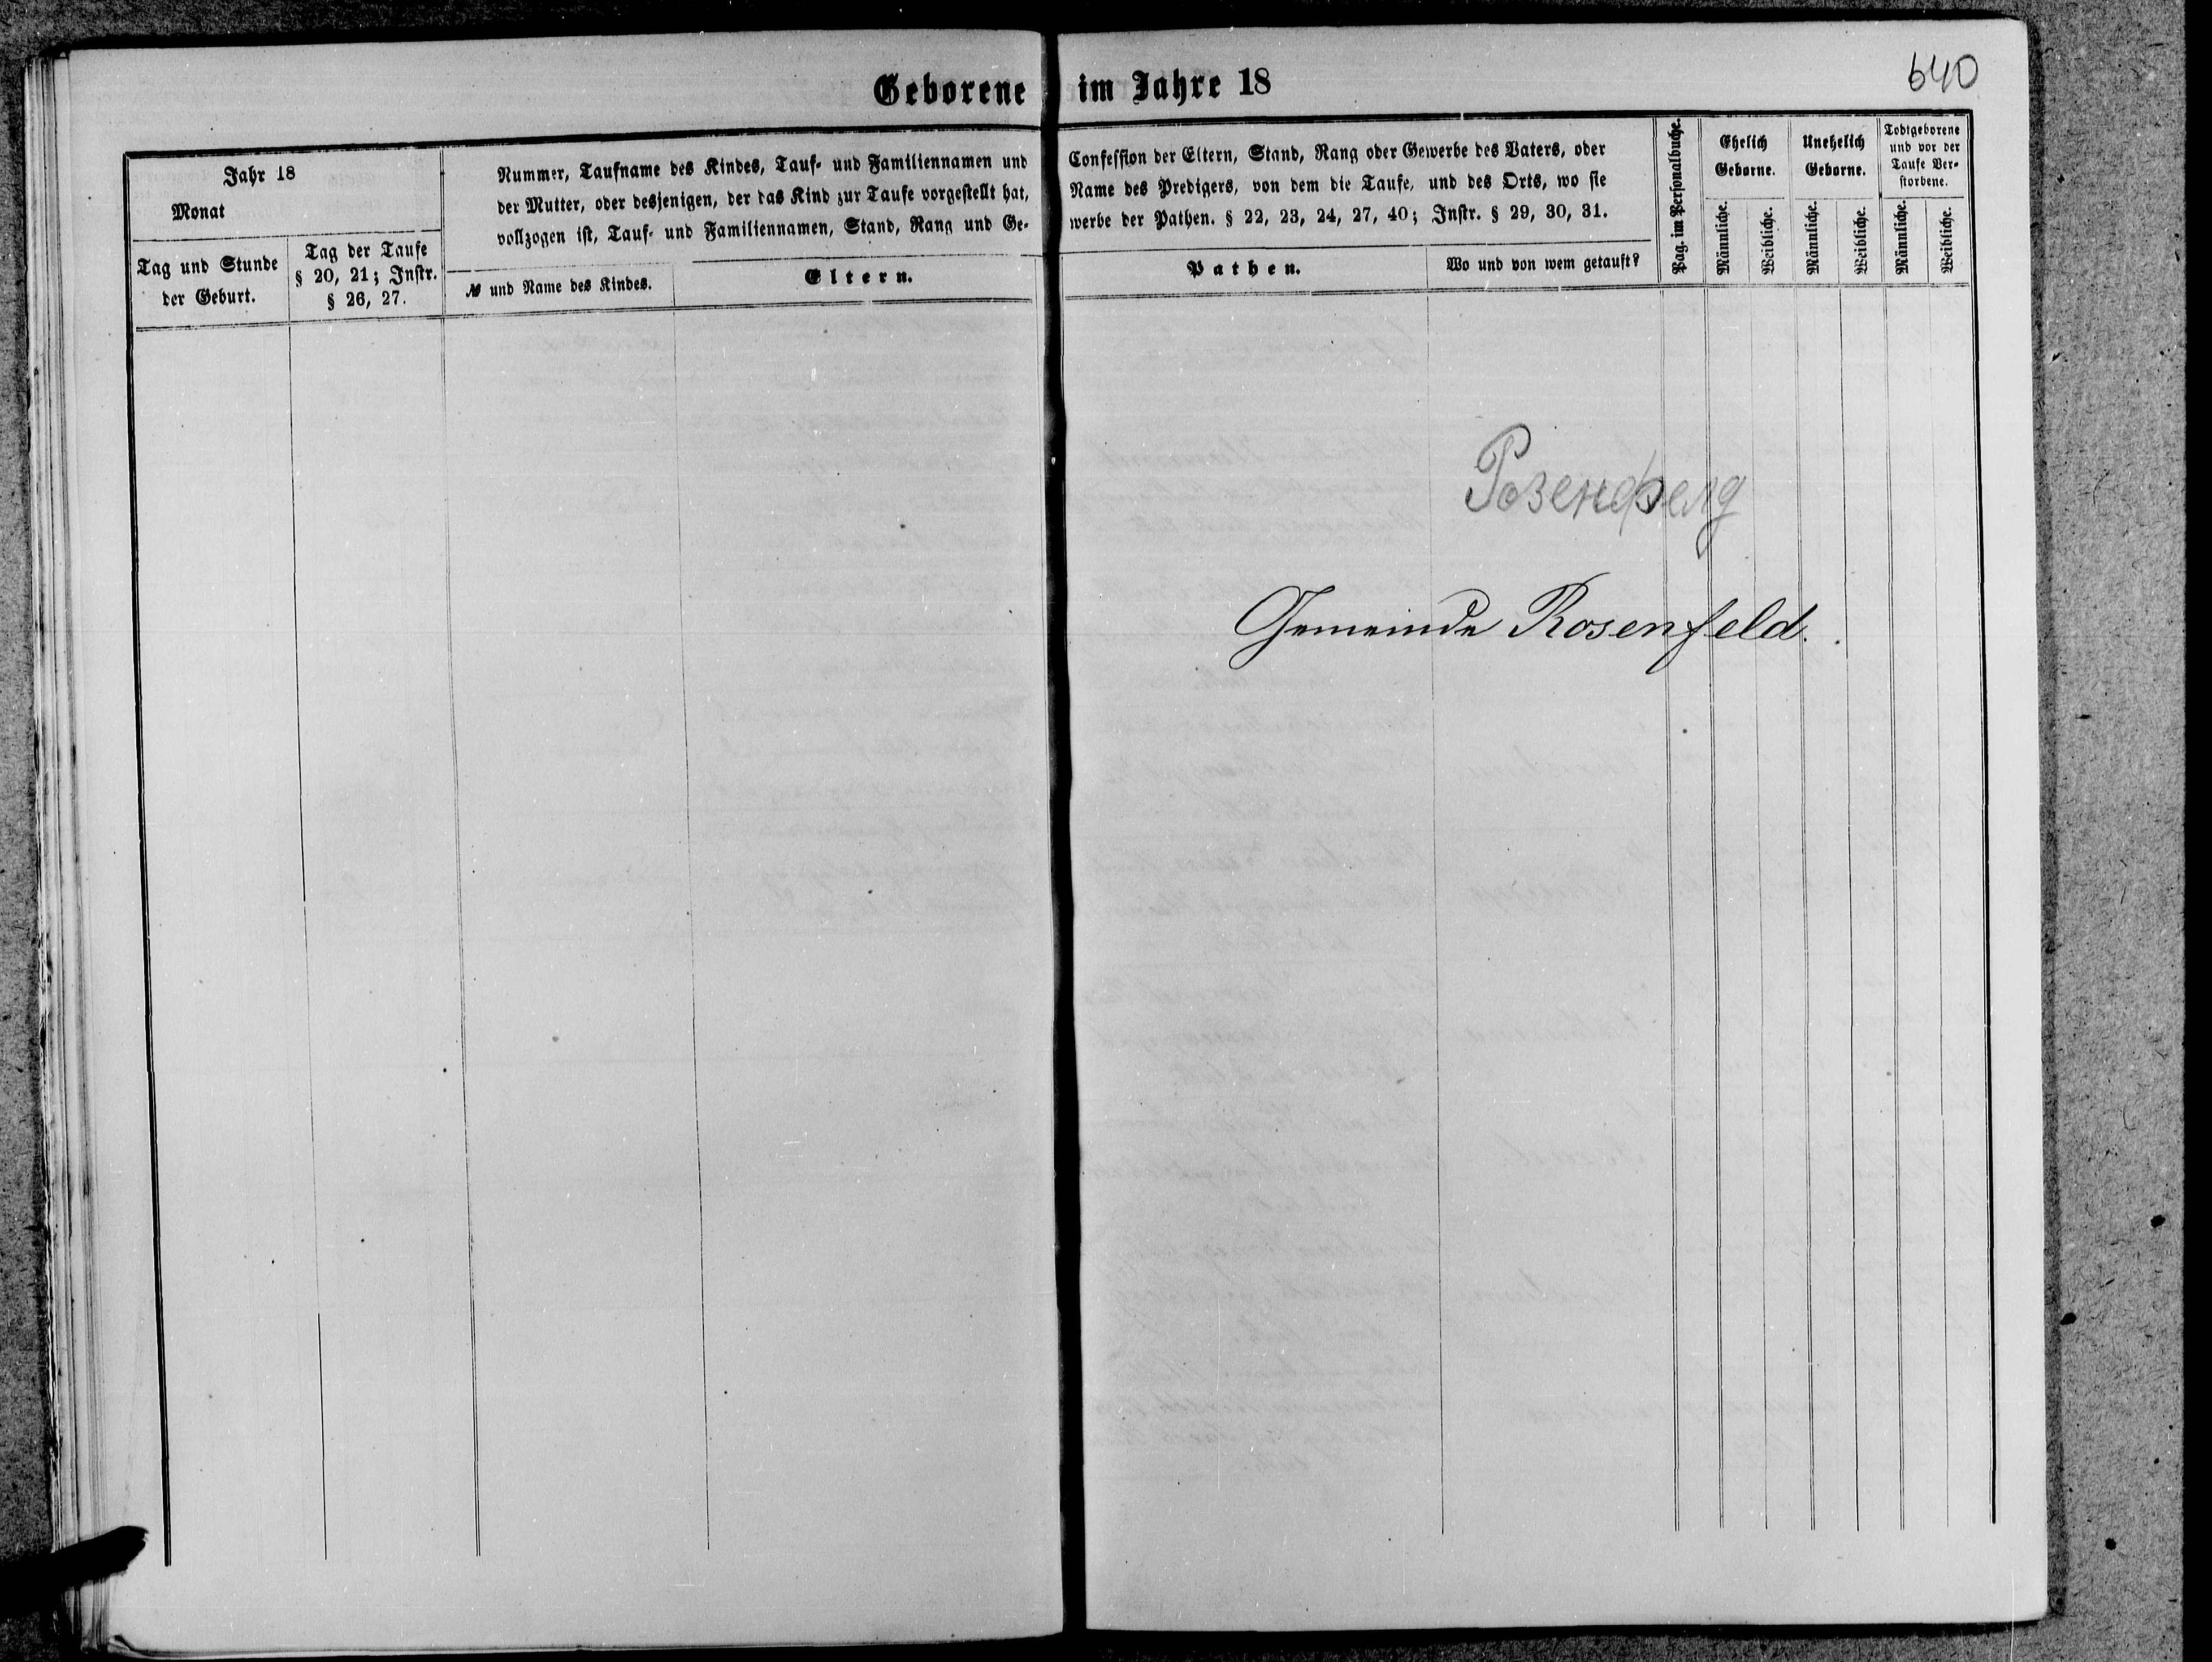 640
Geborene im Jahre 18
Jahr 18
Monat
Tag und Stunde
der Geburt.
Tag der Taufe
§ 20, 21; Instr.
§ 26, 27.
Nummer, Taufname des Kindes, Tauf- und Familiennamen und
der Mutter, oder desjenigen, der das Kind zur Taufe vorgestellt hat,
vollzogen ist, Tauf- und Familiennamen, Stand, Rang und Ge-
№ und Name des Kindes.
Eltern.
Confession der Eltern, Stand, Rang oder Gewerbe des Vaters, oder
Name des Predigers, von dem die Taufe, und des Orts, wo sie
werbe der Pathen. § 22, 23, 24, 27, 40; Instr. § 29, 30, 31.
Pathen.
Wo und von wem getauft?
Pag. im Personalbuche.
Ehelich
Geborne.
Männliche.
Weibliche.
Unehelich
Geborne.
Männliche.
Weibliche.
Todtgeborene
und vor der
Taufe Ver-
storbene.
Männliche.
Weibliche.
Розенфелд
Gemeinde Rosenfeld.